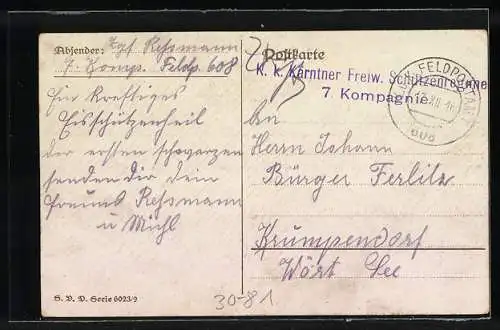 Absender: Zgf Ressmann
7. Komp. Feldp. 608
Ein kreftiges
Eisschützenheil
der ersten schwarzen
senden dir dein
freund Ressmann
u Michl
S. V. D. Serie 6023/9
Postkarte
K. k. Kärntner Freiw. Schützenregime
7. Kompagnie
FELDPOSTAMT
608
An
Herrn Johann
Bürger Ferlitz
Krumpendorf
Wört See
30-81